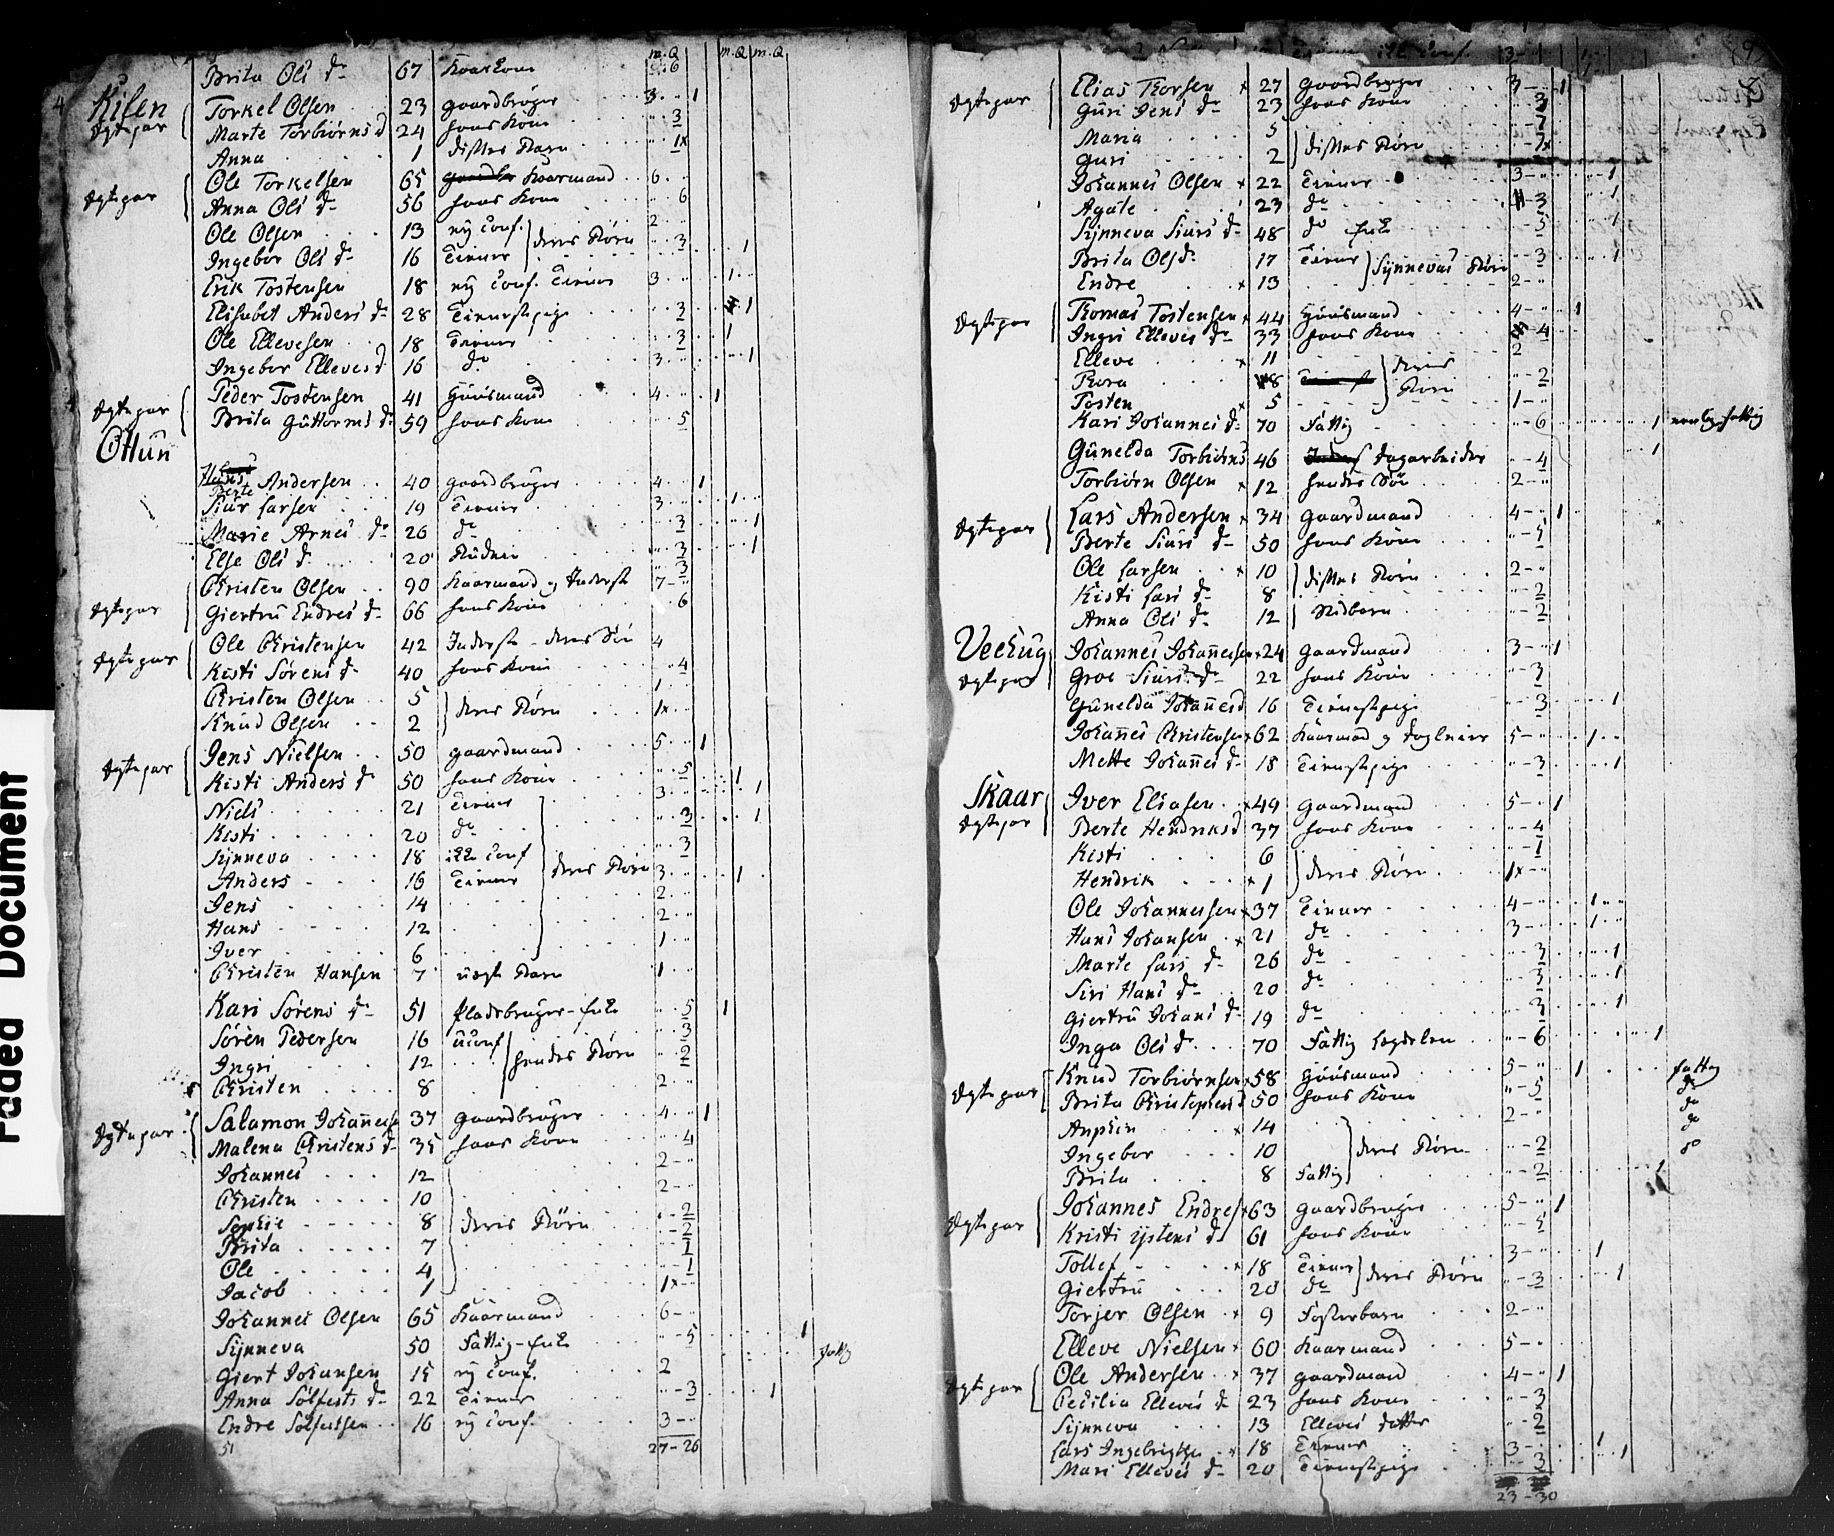 m. Q m. Q m. Q
Brita Ols d. 67 Kaarkone 6
Kilen
Torkel Olsen 23 gaardbruger 3 1
Egtepar Marte Torbiørns d 24 hans Kone 3
Anna 1 disses Barn 1x
Ole Torkelsen 65 Kaarmand 6
Egtepar Anna Ols d. 56 hans Kone 6
Ole Olsen 13 ny Conf. 2
Ingebor Ols d. 16 Tiener deres Børn 3 1
Erik Tostensen 18 ny Conf. Tiener 3 1
Elisabet Anders d. 28 Tienestepige 3 1
Ole Ellevesen 18 Tiener 3 1
Ingebor Elleves d 16 do 3 1
Peder Tostensen 41 Huusmand 4 1
Egtepar Brita Guttorms d. 59 hans Kone 5
Ottun
Hans Andersen 40 gaardbruger 4 1
Siur Larsen 19 Tiener 3 1
Marie Arnes d. 26 do 3 1
Else Ols d. 20 Budeie 3 1
Christen Olsen 90 Kaarmand og Inderst 7
Egtepar Giertru Endres d. 66 hans Kone 6
Ole Christensen 42 Inderst - deres Søn 4
Egtepar Kisti Sørens d. 40 hans Kone 4
Christen Olsen 5 1
Knud Olsen 2 deres Børn 1x
Jens Nielsen 50 gaardmand 5 1
Egtepar Kisti Anders d. 50 hans Kone 5
Niels 21 Tiener 3 1
Kisti 20 do 3 1
Synneva 18 ikke Conf 3
Anders 16 Tiener deres Børn 3 1
Jens 14 2
Hans 12 2
Iver 6 1
Christen Hansen 7 uægte Barn 1
Kari Sørens d. 51 pladsbruger-enke 5 1
Søren Pedersen 16 uconf 3
Ingri 12 hendes Børn 2
Christen 8 2
Salamon Johannesen 37 gaardbruger 4 1
Egtepar Malena Christens d. 35 hans Kone 4
Johannes 12 2
Christen 10 2
Sophie 8 deres Børn 2
Brita 7 2
Ole 4 1
Jacob 1 1x
Johannes Olsen 65 Kaarmand 6
Synneva 50 Fattig-enke 5 1 fattig
Giert Johansen 15 ny Conf. 2
Anna Solfests d. 22 Tiener 3 1
Endre Solfestsen 16 ny Conf. 3
51 27-26
Elias Thorsen x 27 gaardbruger 3 1
Egtepar Guri Jens d. 23 hans Kone 3
Maria 5
Guri 2 disses Børn 1x
Johannes Olsen x 22 Tiener 3 1
Agate 23 do 3 1
Synneva Siurs d. 48 do enke 5 1
Brita Ols d. 17 Tiener Synnevas Børn 3 1
Endre x 13 2
Thomas Tostensen x 44 Huusmand 4 1
Egtepar Ingri Elleves d. 33 hans Kone 4
Elleve x 11 deres 2
Thora 8 Børn 2
Tosten x 5 1
Kari Johannes d. 70 Fattig 6 1
Gunelda Torbiørns 46 dagarbeider 4 1
Torbiørn Olsen x 12 hendes Søn 2
Lars Andersen x 34 gaardmand 4 1
Egtepar Berte Siurs d. 50 hans Kone 5
Ole Larsen x 10 disses Børn 2
Kisti Lars d. 8 2
Anna Ols d. 12 2
Veehug Johannes Johannesen x 24 gaardmand 3 1
Egtepar Groe Siurs d. 22 hans Kone 3
Gunelda Johannes d 16 Tienestepige 3 1
Johannes Christensen x 62 Kaarmand og 5 1
Mette Johannes d. 18 Tienestepige 3 1
Skaar Iver Eliasen x 49 gaardmand 5 1
Egtepar Berte Hendriks d 37 hans Kone 4
Kisti 6 1
Hendrik x 1 deres Børn 1x
Ole Johannesen x 37 Tiener 4 1
Hans Johansen x 21 do 3 1
Marte Lars d. 26 do 3 1
Siri Hans d. 20 do 3 1
Giertru Johans d. 19 do 3 1
Inga Ols d. 70 Fattig Lægdelem 6 1
Knud Torbiørnsen x 58 Huusmand 5 1 fattig
Egtepar Brita Christophers d 50 hans Kone 5 do
Anphin x 14 2 do
Ingebor 10 deres Børn 2 do
Brita 8 Fattig 2 1 do
Johannes Endres x 63 gaardbruger 5 1
Egtepar Kristi Ystens d. 61 hans Kone 5
Tollef x 18 Tiener 3 1
Giertru 20 do deres Børn 3 1
Torjer Olsen x 9 Fosterbarn 2
Elleve Nielsen x 60 Kaarmand 5
Ole Andersen x 37 gaardmand 4 1
Egtepar Cecilia Elleves d 23 hans Kone 3
Synneva 13 Elleves datter 2
Lars Ingebrigtsen x 18 Tiener 3 1
Mari Elleves d. 20 Tienestepige 3 1
23-30
Faded Document